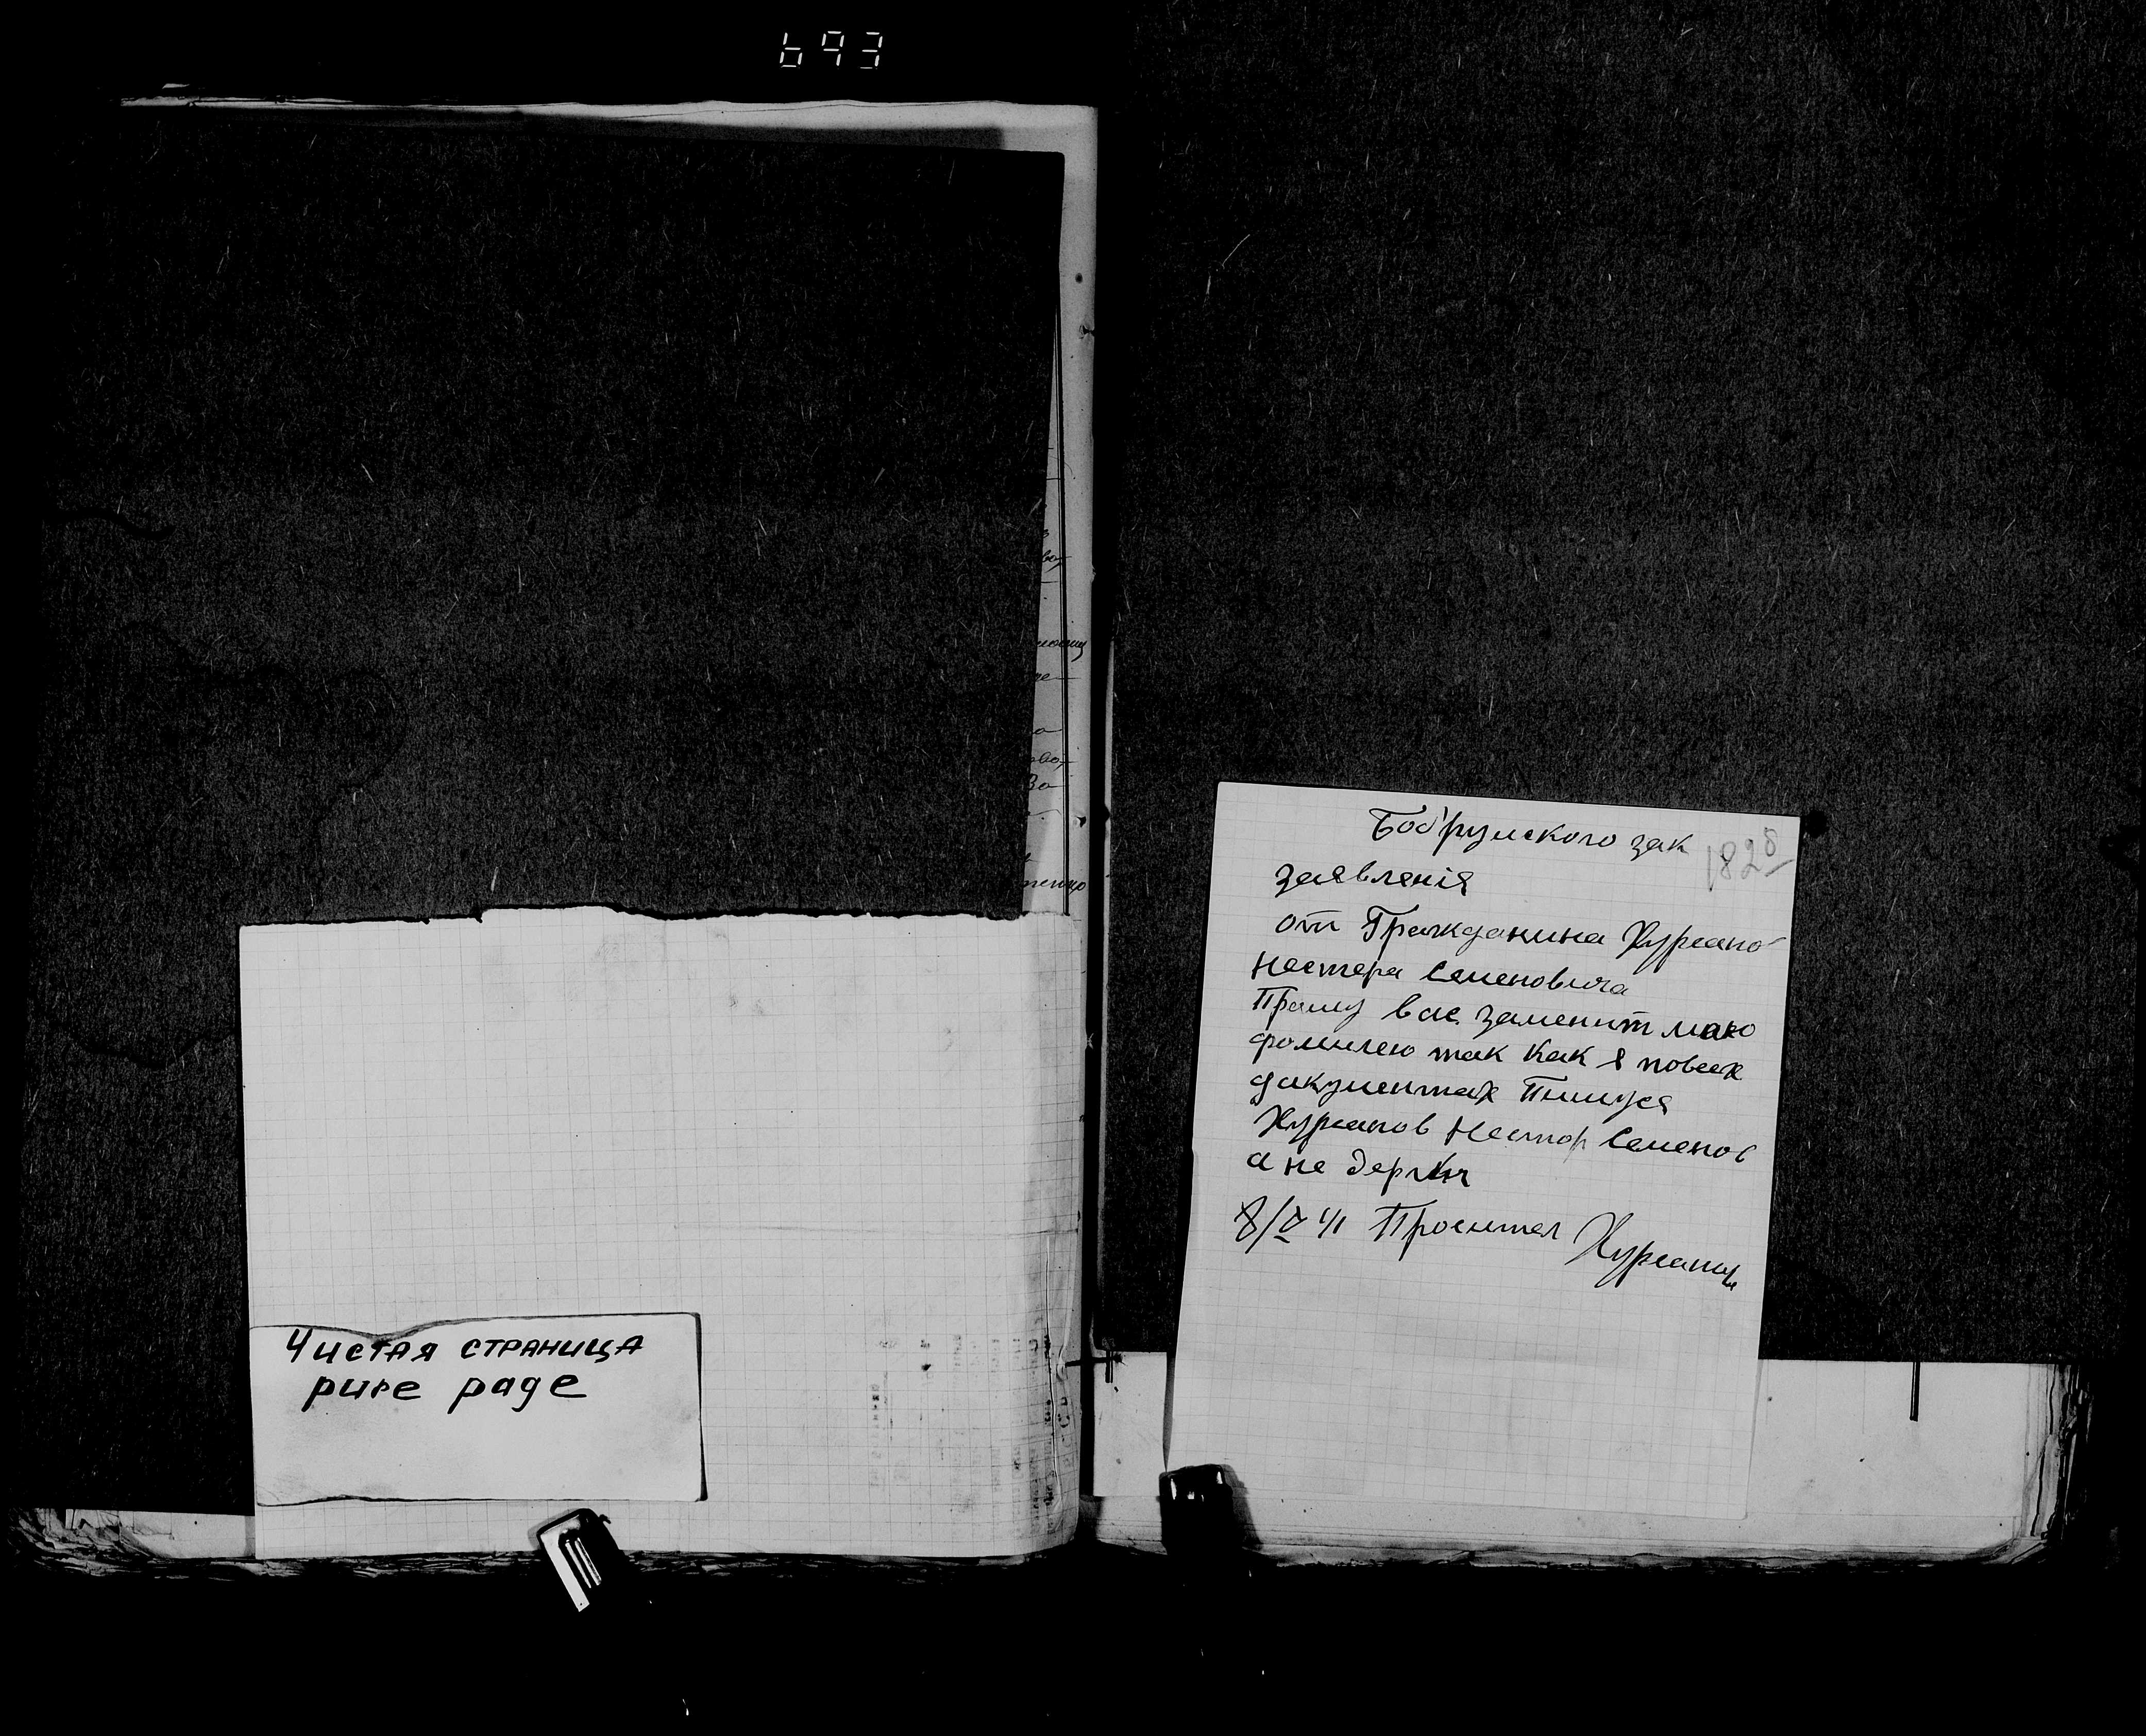 693
во
Чистая страница
pure page
1828
Бобруйского зак
заявленія
от Гражданина Курсано
Нестера Семеновича
Прашу вас заменит маю
фомилею так как я повсех
дакументах Пишуся
Курсанов Нестор Семенов
а не
8/V 41 Проситель